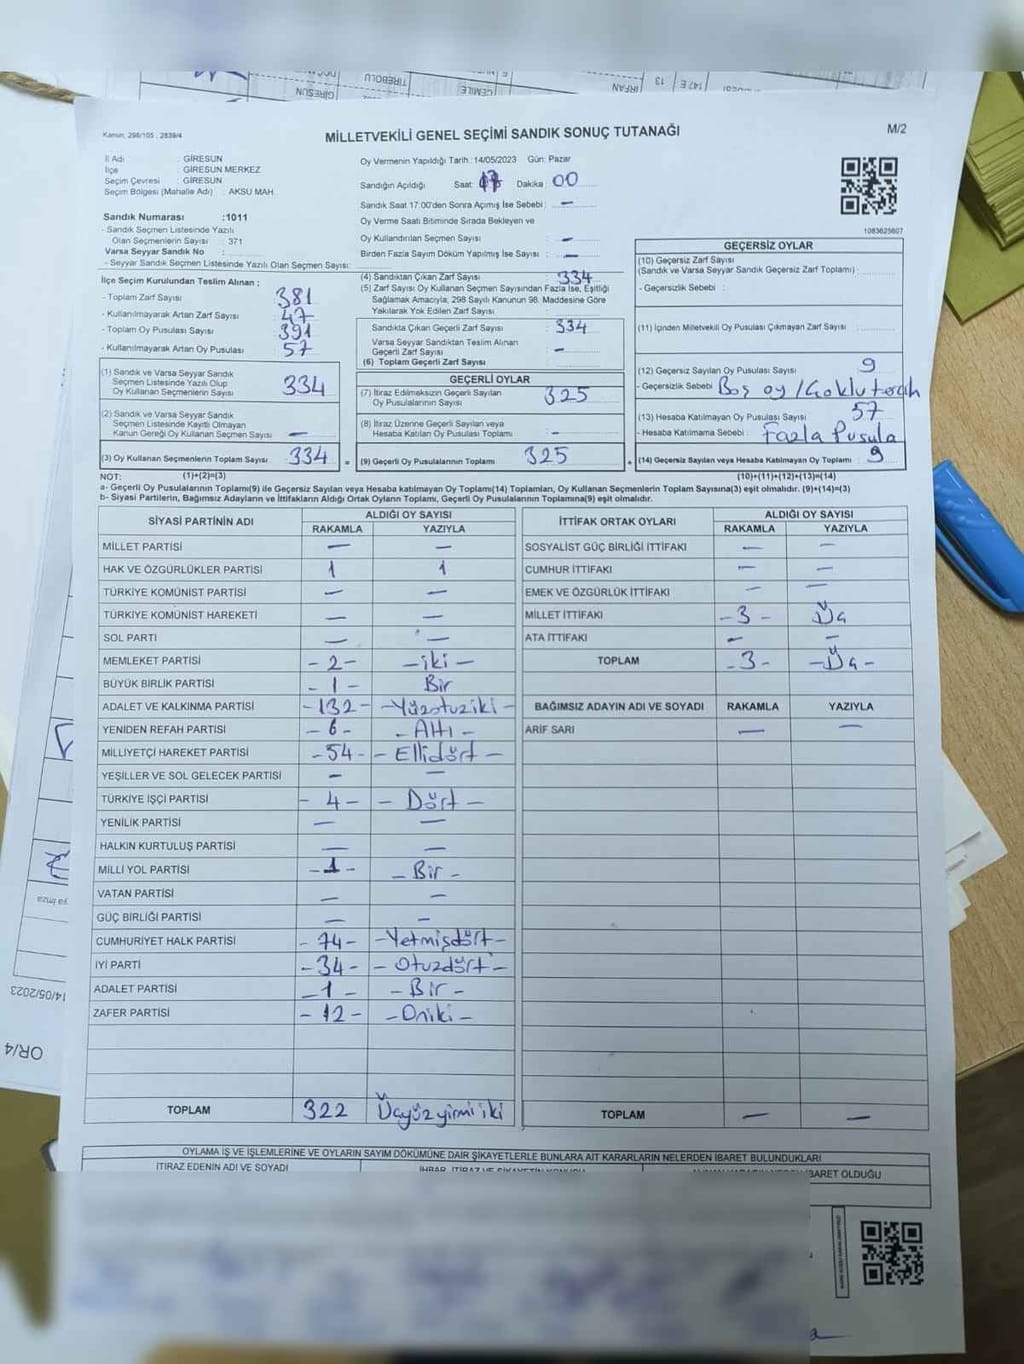 TİREBOLU
CEMİLE
GİRESUN
İRFAN
13
147 E
Kanun, 298/105 , 2839/4
MİLLETVEKİLİ GENEL SEÇİMİ SANDIK SONUÇ TUTANAĞI
M/2
İl Adı : GİRESUN
İlçe : GİRESUN MERKEZ
Seçim Çevresi : GİRESUN
Seçim Bölgesi (Mahalle Adı) : AKSU MAH.
Oy Vermenin Yapıldığı Tarih :14/05/2023 Gün: Pazar
Sandığın Açıldığı Saat: 17 Dakika: 00
Sandık Saat 17:00'den Sonra Açımış İse Sebebi : —
Oy Verme Saati Bitiminde Sırada Bekleyen ve
Oy Kullandırılan Seçmen Sayısı : —
Birden Fazla Sayım Döküm Yapılmış İse Sayısı : —
1083625607
Sandık Numarası :1011
- Sandık Seçmen Listesinde Yazılı
Olan Seçmenlerin Sayısı : 371
Varsa Seyyar Sandık No :
- Seyyar Sandık Seçmen Listesinde Yazılı Olan Seçmen Sayısı:
İlçe Seçim Kurulundan Teslim Alınan ;
- Toplam Zarf Sayısı : 381
- Kullanılmayarak Artan Zarf Sayısı : 47
- Toplam Oy Pusulası Sayısı : 391
- Kullanılmayarak Artan Oy Pusulası : 57
(1) Sandık ve Varsa Seyyar Sandık
Seçmen Listesinde Yazılı Olup
Oy Kullanan Seçmenlerin Sayısı : 334
(2) Sandık ve Varsa Seyyar Sandık
Seçmen Listesinde Kayıtlı Olmayan
Kanun Gereği Oy Kullanan Seçmen Sayısı : —
(3) Oy Kullanan Seçmenlerin Toplam Sayısı : 334
(4) Sandıktan Çıkan Zarf Sayısı : 334
(5) Zarf Sayısı Oy Kullanan Seçmen Sayısından Fazla İse, Eşitliği
Sağlamak Amacıyla, 298 Sayılı Kanunun 98. Maddesine Göre
Yakılarak Yok Edilen Zarf Sayısı :
Sandıkta Çıkan Geçerli Zarf Sayısı : 334
Varsa Seyyar Sandıktan Teslim Alınan
Geçerli Zarf Sayısı : —
(6) Toplam Geçerli Zarf Sayısı :
GEÇERLİ OYLAR
(7) İtiraz Edilmeksizin Geçerli Sayılan
Oy Pusulalarının Sayısı : 325
(8) İtiraz Üzerine Geçerli Sayılan veya
Hesaba Katılan Oy Pusulası Toplamı : —
= (9) Geçerli Oy Pusulalarının Toplamı : 325
GEÇERSİZ OYLAR
(10) Geçersiz Zarf Sayısı
(Sandık ve Varsa Seyyar Sandık Geçersiz Zarf Toplamı) :
- Geçersizlik Sebebi :
(11) İçinden Milletvekili Oy Pusulası Çıkmayan Zarf Sayısı :
(12) Geçersiz Sayılan Oy Pusulası Sayısı : 9
- Geçersizlik Sebebi : Boş oy / Çoklu tercih
(13) Hesaba Katılmayan Oy Pusulası Sayısı : 57
- Hesaba Katılmama Sebebi : Fazla Pusula
+ (14) Geçersiz Sayılan veya Hesaba Katılmayan Oy Toplamı : 9
NOT: (1)+(2)=(3) (10)+(11)+(12)+(13)=(14)
a- Geçerli Oy Pusulalarının Toplamı(9) ile Geçersiz Sayılan veya Hesaba katılmayan Oy Toplamı(14) Toplamları, Oy Kullanan Seçmenlerin Toplam Sayısına(3) eşit olmalıdır. (9)+(14)=(3)
b- Siyasi Partilerin, Bağımsız Adayların ve İttifakların Aldığı Ortak Oyların Toplamı, Geçerli Oy Pusulalarının Toplamına(9) eşit olmalıdır.
SİYASİ PARTİNİN ADI ALDIĞI OY SAYISI
RAKAMLA YAZIYLA
MİLLET PARTİSİ — —
HAK VE ÖZGÜRLÜKLER PARTİSİ 1 1
TÜRKİYE KOMÜNİST PARTİSİ — —
TÜRKİYE KOMÜNİST HAREKETİ — —
SOL PARTİ — —
MEMLEKET PARTİSİ -2- -iki-
BÜYÜK BİRLİK PARTİSİ -1- Bir
ADALET VE KALKINMA PARTİSİ -132- -Yüzotuziki-
YENİDEN REFAH PARTİSİ -6- -Altı-
MİLLİYETÇİ HAREKET PARTİSİ -54- -Ellidört-
YEŞİLLER VE SOL GELECEK PARTİSİ — —
TÜRKİYE İŞÇİ PARTİSİ -4- -Dört-
YENİLİK PARTİSİ — —
HALKIN KURTULUŞ PARTİSİ — —
MİLLİ YOL PARTİSİ -1- -Bir-
VATAN PARTİSİ — —
GÜÇ BİRLİĞİ PARTİSİ — —
CUMHURİYET HALK PARTİSİ -74- -Yetmişdört-
İYİ PARTİ -34- -Otuzdört-
ADALET PARTİSİ -1- -Bir-
ZAFER PARTİSİ -12- -Oniki-
TOPLAM 322 Üçyüzyirmiiki
İTTİFAK ORTAK OYLARI ALDIĞI OY SAYISI
RAKAMLA YAZIYLA
SOSYALİST GÜÇ BİRLİĞİ İTTİFAKI — —
CUMHUR İTTİFAKI — —
EMEK VE ÖZGÜRLÜK İTTİFAKI — —
MİLLET İTTİFAKI -3- Üç
ATA İTTİFAKI — —
TOPLAM -3- -Üç-
BAĞIMSIZ ADAYIN ADI VE SOYADI RAKAMLA YAZIYLA
ARİF SARI — —
TOPLAM — —
OYLAMA İŞ VE İŞLEMLERİNE VE OYLARIN SAYIM DÖKÜMÜNE DAİR ŞİKAYETLERLE BUNLARA AİT KARARLARIN NELERDEN İBARET BULUNDUKLARI
İTİRAZ EDENİN ADI VE SOYADI
İBARET OLDUĞU
ya imza
14/05/2023
OR/4